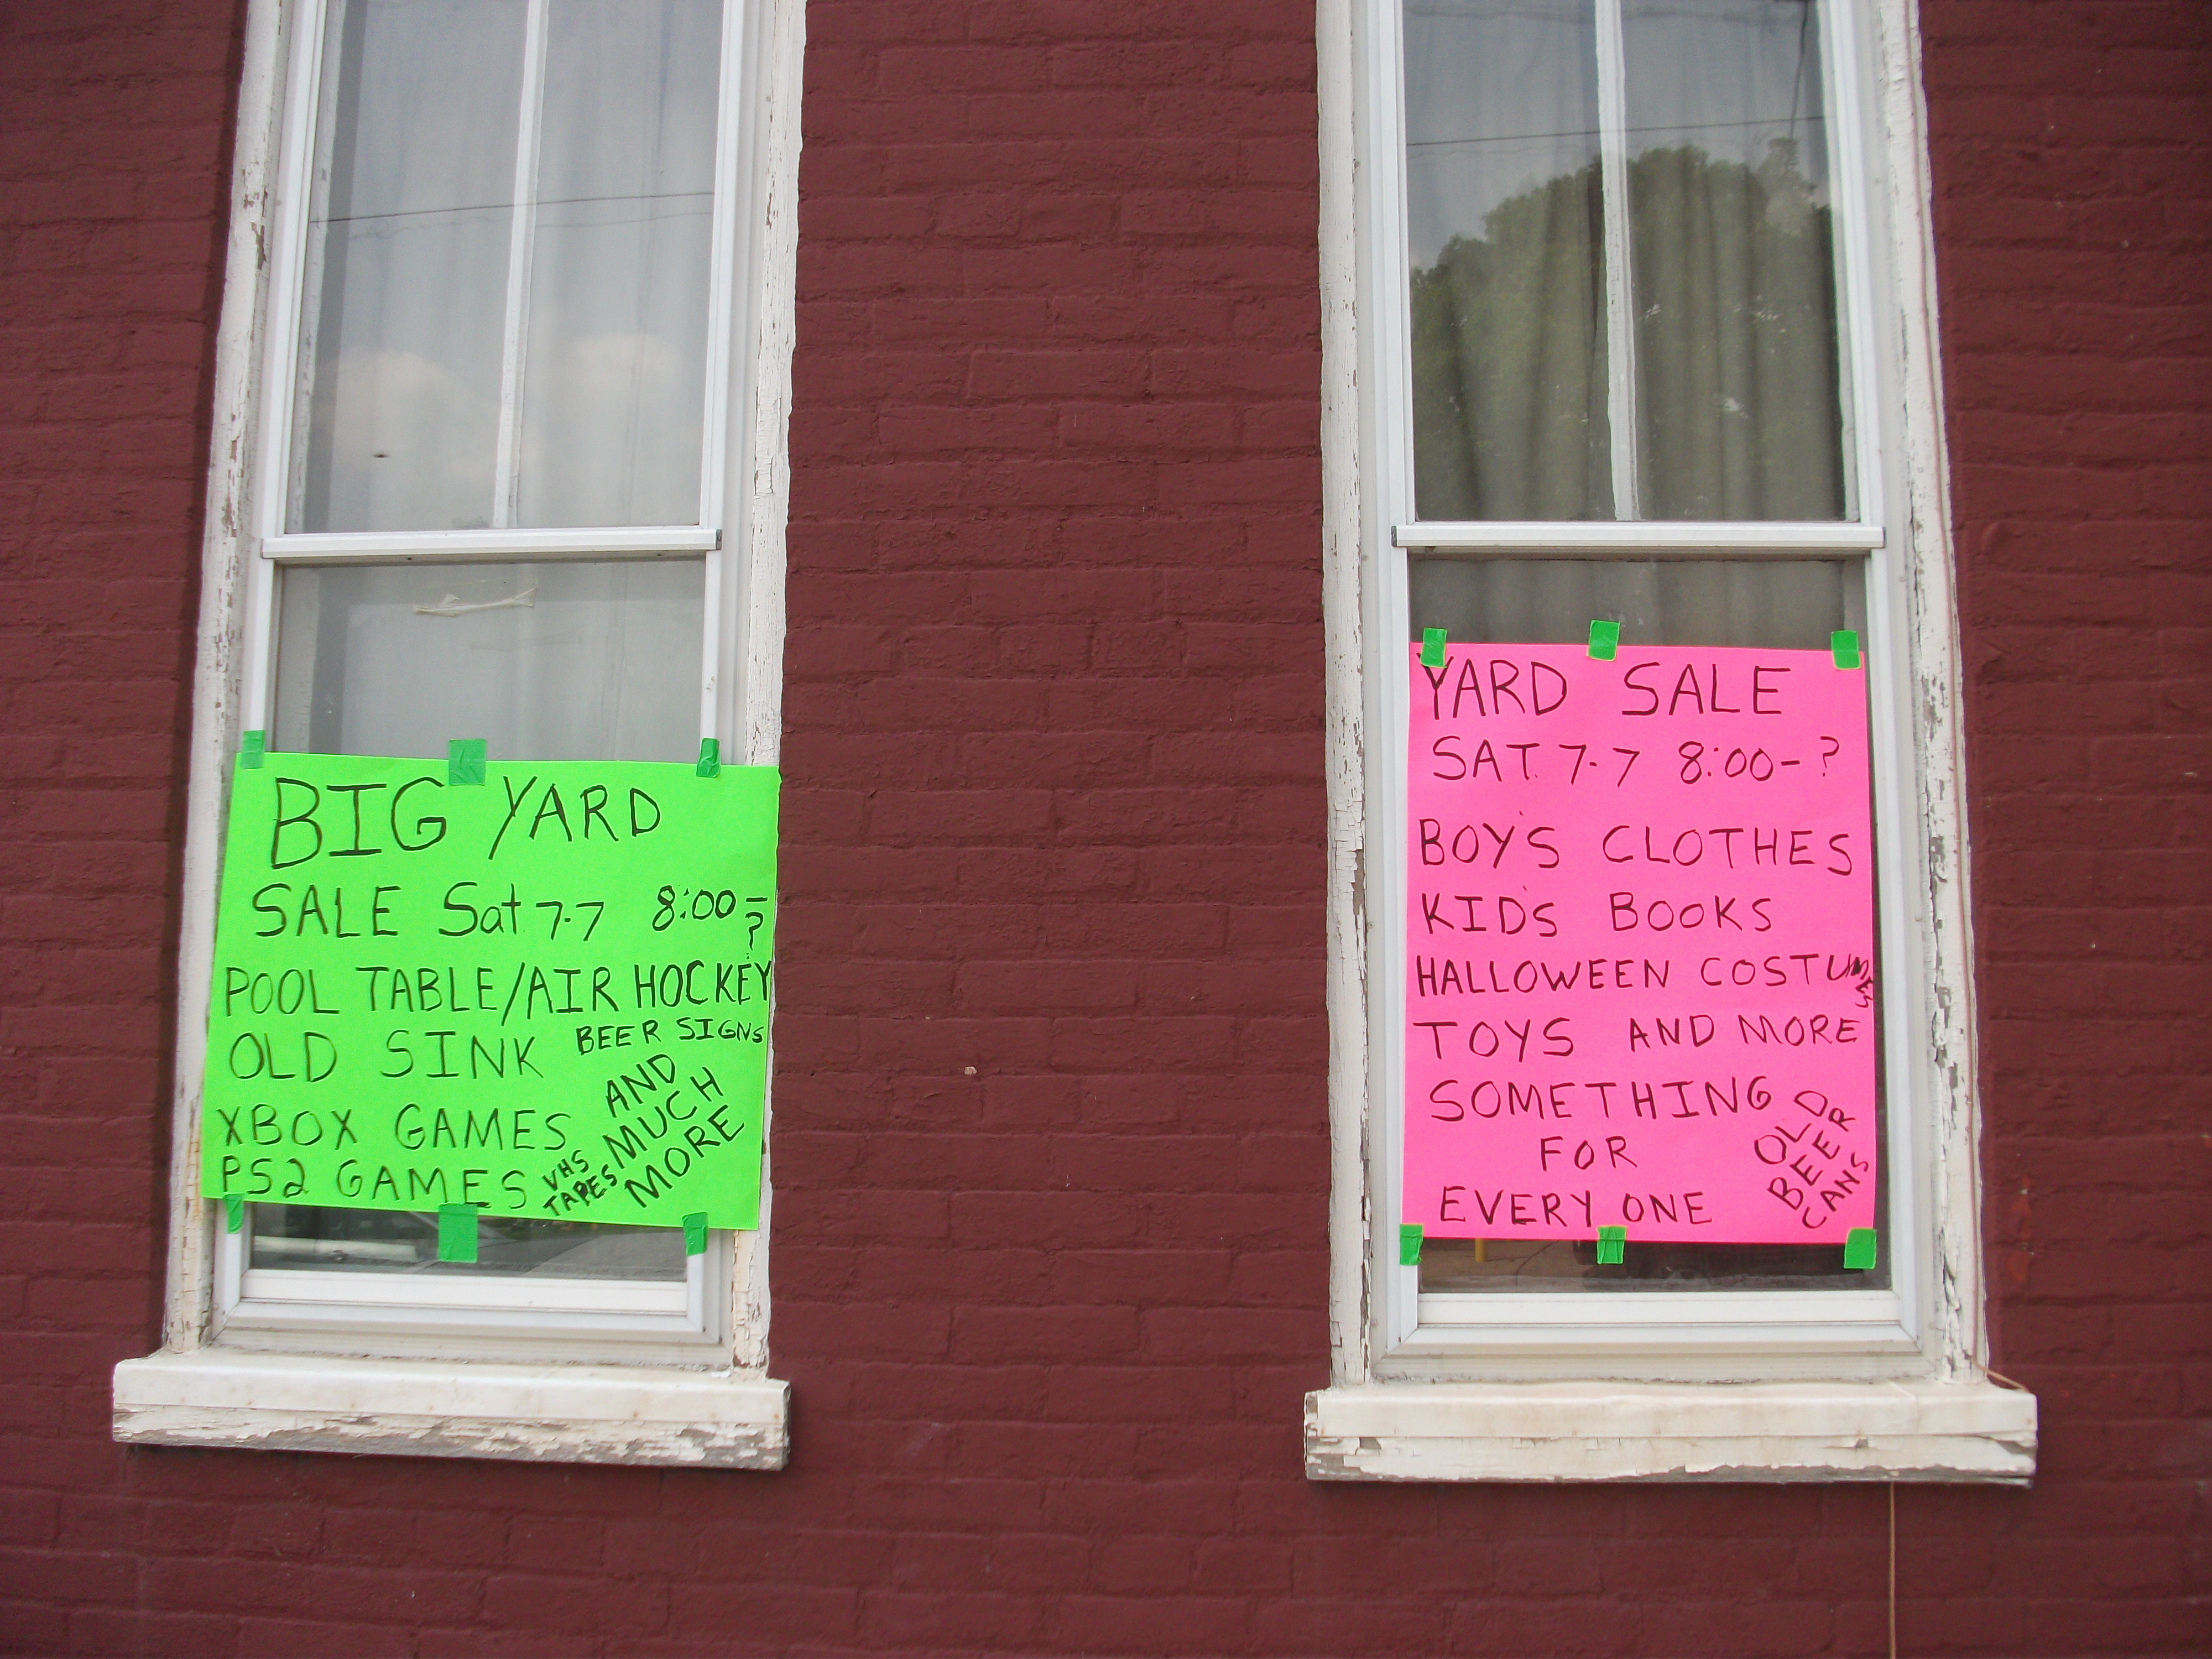 BIG YARD
SALE Sat 7-7 8:00-?
POOL TABLE/AIR HOCKEY
OLD SINK BEER SIGNS
AND
MUCH
MORE
XBOX GAMES
PS2 GAMES
VHS
TAPES
YARD SALE
SAT. 7-7 8:00-?
BOY'S CLOTHES
KID'S BOOKS
HALLOWEEN COSTUMES
TOYS AND MORE
SOMETHING
FOR
EVERY ONE
OLD
BEER
CANS